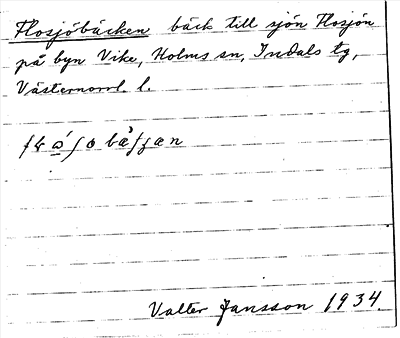 Flosjöbäcken bäck till sjön Flosjön
på byn Vike, Holms sn, Indals tg,
Västernorrl. l.
Valter Jansson 1934.